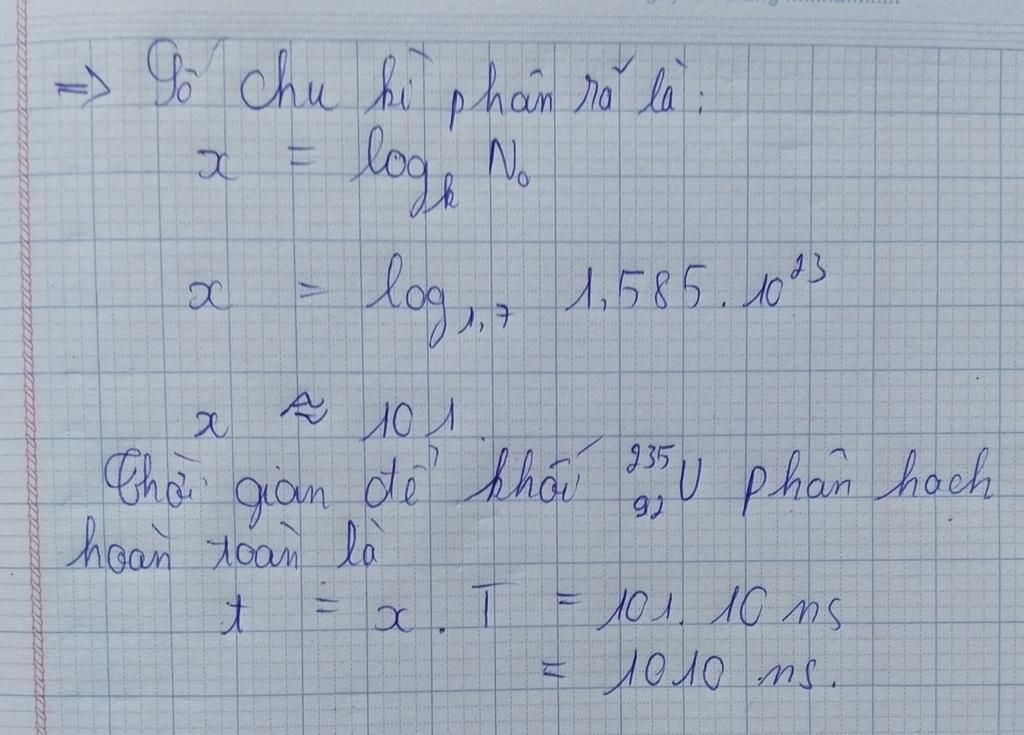 => Số chu kì phân rã là:
x = log_k N₀
x = log_1,7 1,585 . 10²³
x ≈ 101.
Thời gian để khối ²³⁵₉₂U phân hach
hoàn toàn là
t = x . T = 101. 10 ns
= 1010 ns.